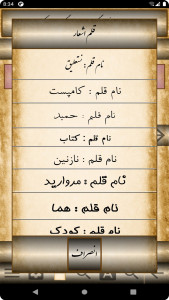 8:34
قلم اشعار
نام قلم : نستعلیق
نام قلم : کامپست
نام قلم : حمید
نام قلم : کتاب
نام قلم : نازنین
نام قلم : مروارید
نام قلم : هما
نام قلم : کودک
انصراف